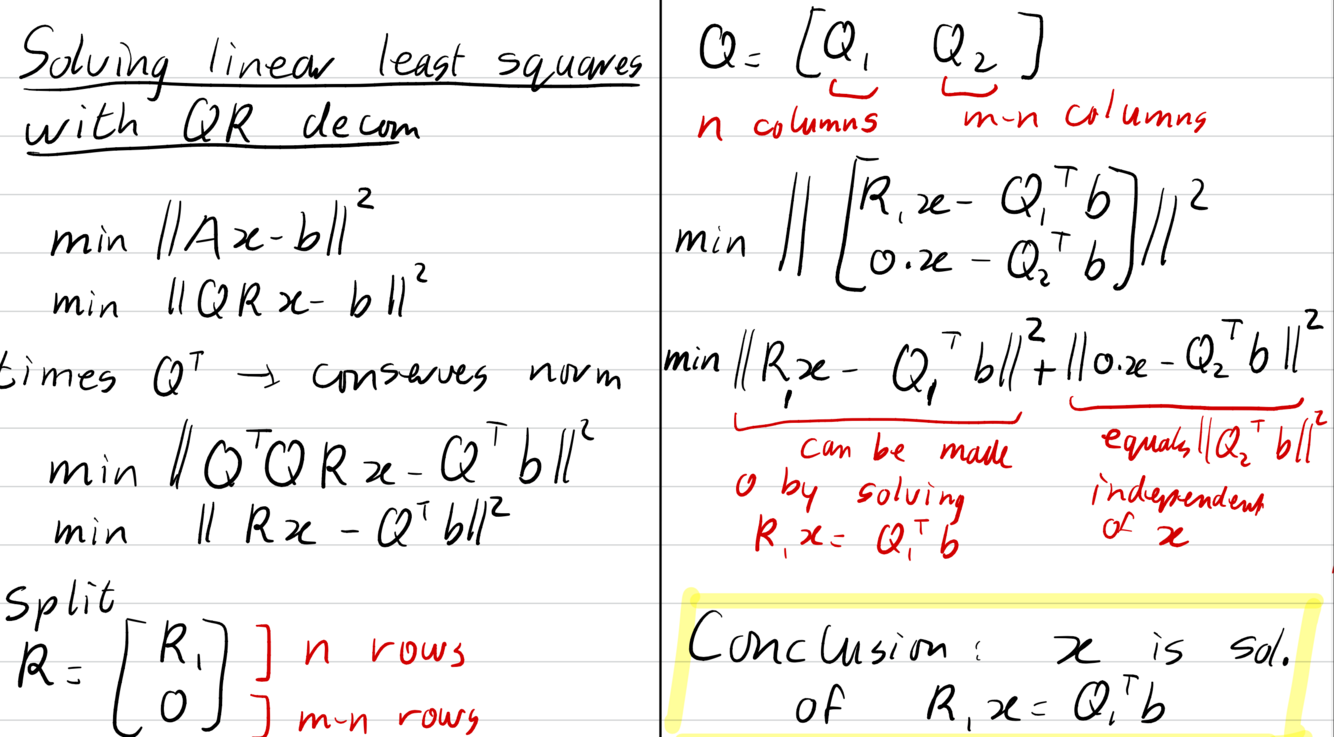 Solving linear least squares
with QR decom
min ||Ax-b||²
min ||QRx-b||²
times Qᵀ → conserves norm
min ||QᵀQRx-Qᵀb||²
min ||Rx-Qᵀb||²
Split
R= [R₁ 0] ] n rows
] m-n rows
Q= [Q₁ Q₂]
n columns m-n columns
min ||[R₁x- Q₁ᵀb
0.x - Q₂ᵀb]||²
min ||R₁x - Q₁ᵀb||²+||0.x-Q₂ᵀb||²
can be made
0 by solving
R₁x= Q₁ᵀb
equals ||Q₂ᵀb||²
independent
of x
Conclusion: x is sol.
of R₁x= Q₁ᵀb